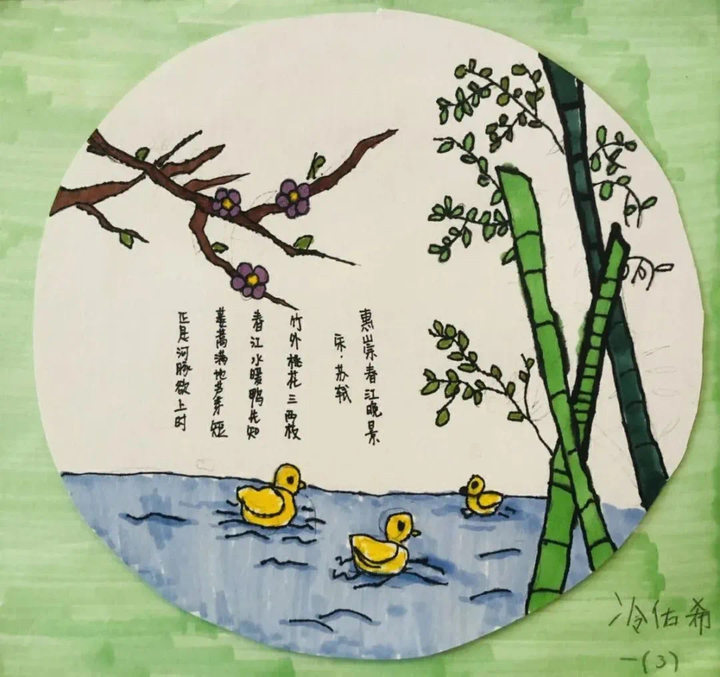 惠崇春江晚景
宋·苏轼
竹外桃花三两枝
春江水暖鸭先知
蒌蒿满地芦芽短
正是河豚欲上时
冷佑希
一(3)